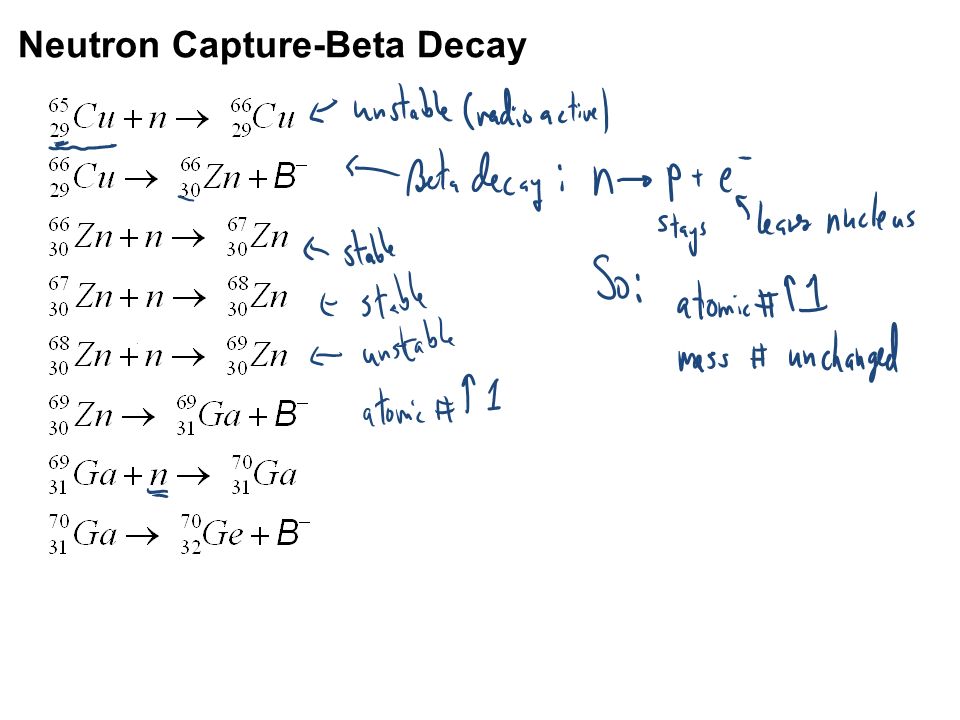 Neutron Capture-Beta Decay
⁶⁵₂₉Cu + n → ⁶⁶₂₉Cu ← unstable (radioactive)
⁶⁶₂₉Cu → ⁶⁶₃₀Zn + B⁻ ← Beta decay: n → p + e⁻
stays leaves nucleus
⁶⁶₃₀Zn + n → ⁶⁷₃₀Zn ← stable
So:
⁶⁷₃₀Zn + n → ⁶⁸₃₀Zn ← stable atomic # ↑ 1
⁶⁸₃₀Zn + n → ⁶⁹₃₀Zn ← unstable mass # unchanged
⁶⁹₃₀Zn → ⁶⁹₃₁Ga + B⁻ atomic # ↑ 1
⁶⁹₃₁Ga + n → ⁷⁰₃₁Ga
⁷⁰₃₁Ga → ⁷⁰₃₂Ge + B⁻